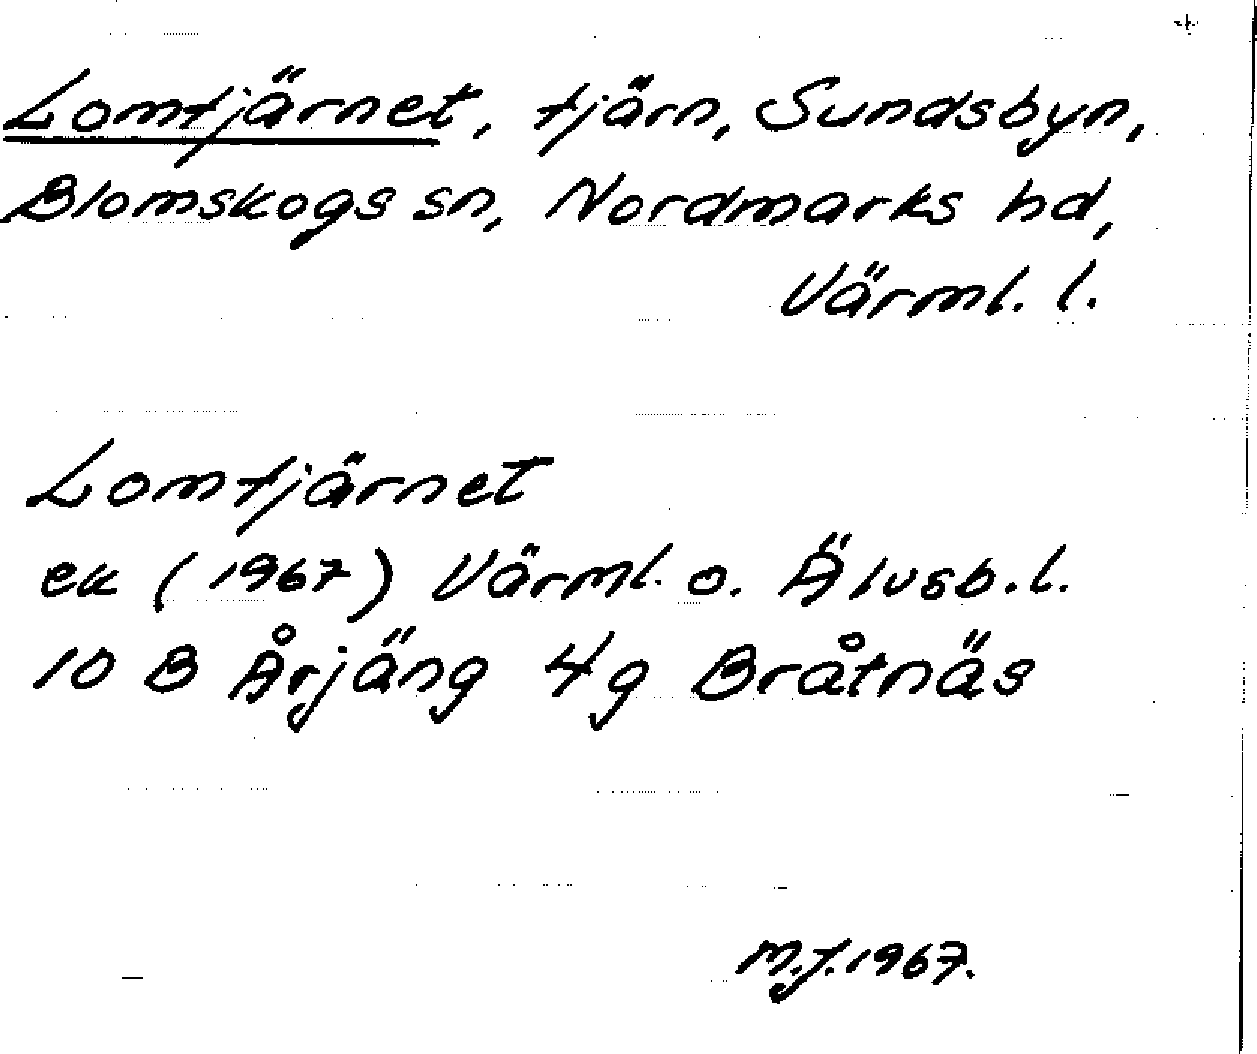 Lomtjärnet, tjärn, Sundsbyn,
Blomskogs sn, Nordmarks hd,
Värml. l.
Lomtjärnet
ek (1967) Värml. o. Älvsb. l.
10 B Årjäng 4g Bråtnäs
M.J. 1967.